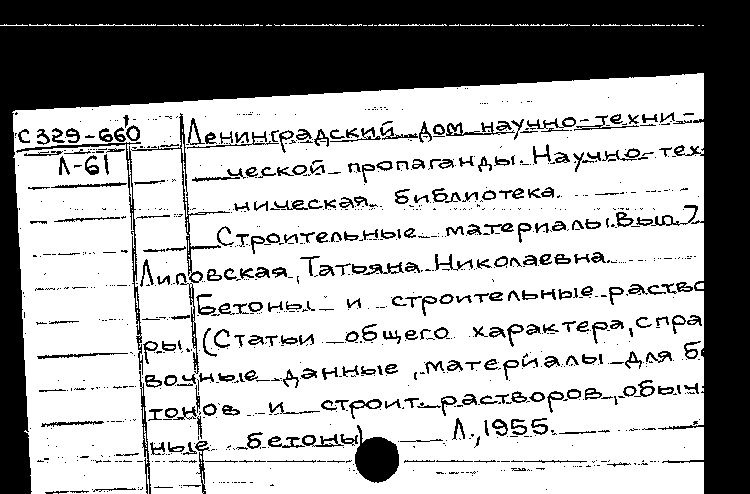 С 329-660
Л-61
Ленинградский дом научно-техни-
ческой пропаганды. Научно-тех
ническая библиотека.
Строительные материалы. Вып. 7
Липовская, Татьяна Николаевна.
Бетоны и строительные раство
ры. (Статьи общего характера, спра
вочные данные, материалы для бе
тонов и строит. растворов, обыч
ные бетоны) Л., 1955.